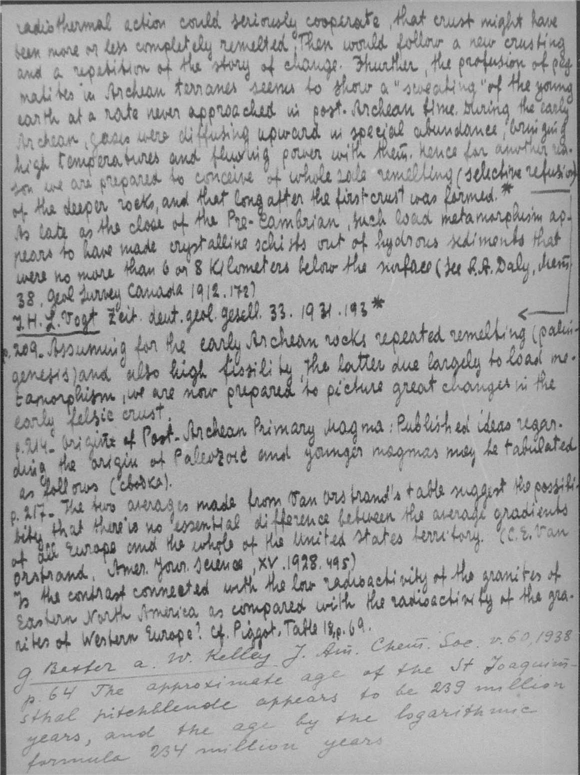 radiothermal action could seriously cooperate, that crust might have
been more or less completely remelted. Then would follow a new crusting
and a repetition of the story of change. Fhurther, the profusion of peg-
matites in Archean terranes seems to show a "sweating" of the young
earth at a rate never approached in post-Archean time. During the early
Archean, gases were diffusing upward in special abundance, bringing
high temperatures and fluxing power with them. Hence for another rea-
son we are prepared to conceive of whole sale remelting (selective refusion)
of the deeper rocks, and that long after the first crust was formed.*
As late as the close of the Pre-Cambrian, such load metamorphism ap-
pears to have made crystalline schists out of hydrous sediments that
were no more than 6 or 8 Kilometers below the surface (See R.A. Daly, Mem
38, Geol Survey Canada 1912. 172)
J.H.L. Vogt Zeit. deut. geol. gesell. 33. 1931. 193*
p. 209_ Assuming for the early Archean rocks repeated remelting (palin-
genesis) and also high fissility, the latter due largely to load me-
tamorphism, we are now prepared to picture great changes in the
early felsic crust.
p. 214_ Origin of Post-Archean Primary Magma: Published ideas regar-
ding the origin of Paleozoic and younger magmas may be tabulated
as follows
p. 217_ The two averages made from Van Orstrand's table suggest the possibi-
bility that there is no essential difference between the average gradients
of all Europe and the whole of the United States territory. (C.E. Van
Orstrand, Amer. Jour. Science, XV. 1928. 495)
Is the contrast connected with the low radioactivity of the granites of
Eastern North America as compared with the radioactivity of the gra-
nites of Western Europe? Cf. Piggot, Table 18, p. 69.
g Baxter a. W. Kelley J. Am. Chem. Soc. v. 60, 1938
p. 64 The approximate age of the St Joachim-
sthal pitchblende appears to be 239 million
years, and the age by the logarithmic
formula 234 million years